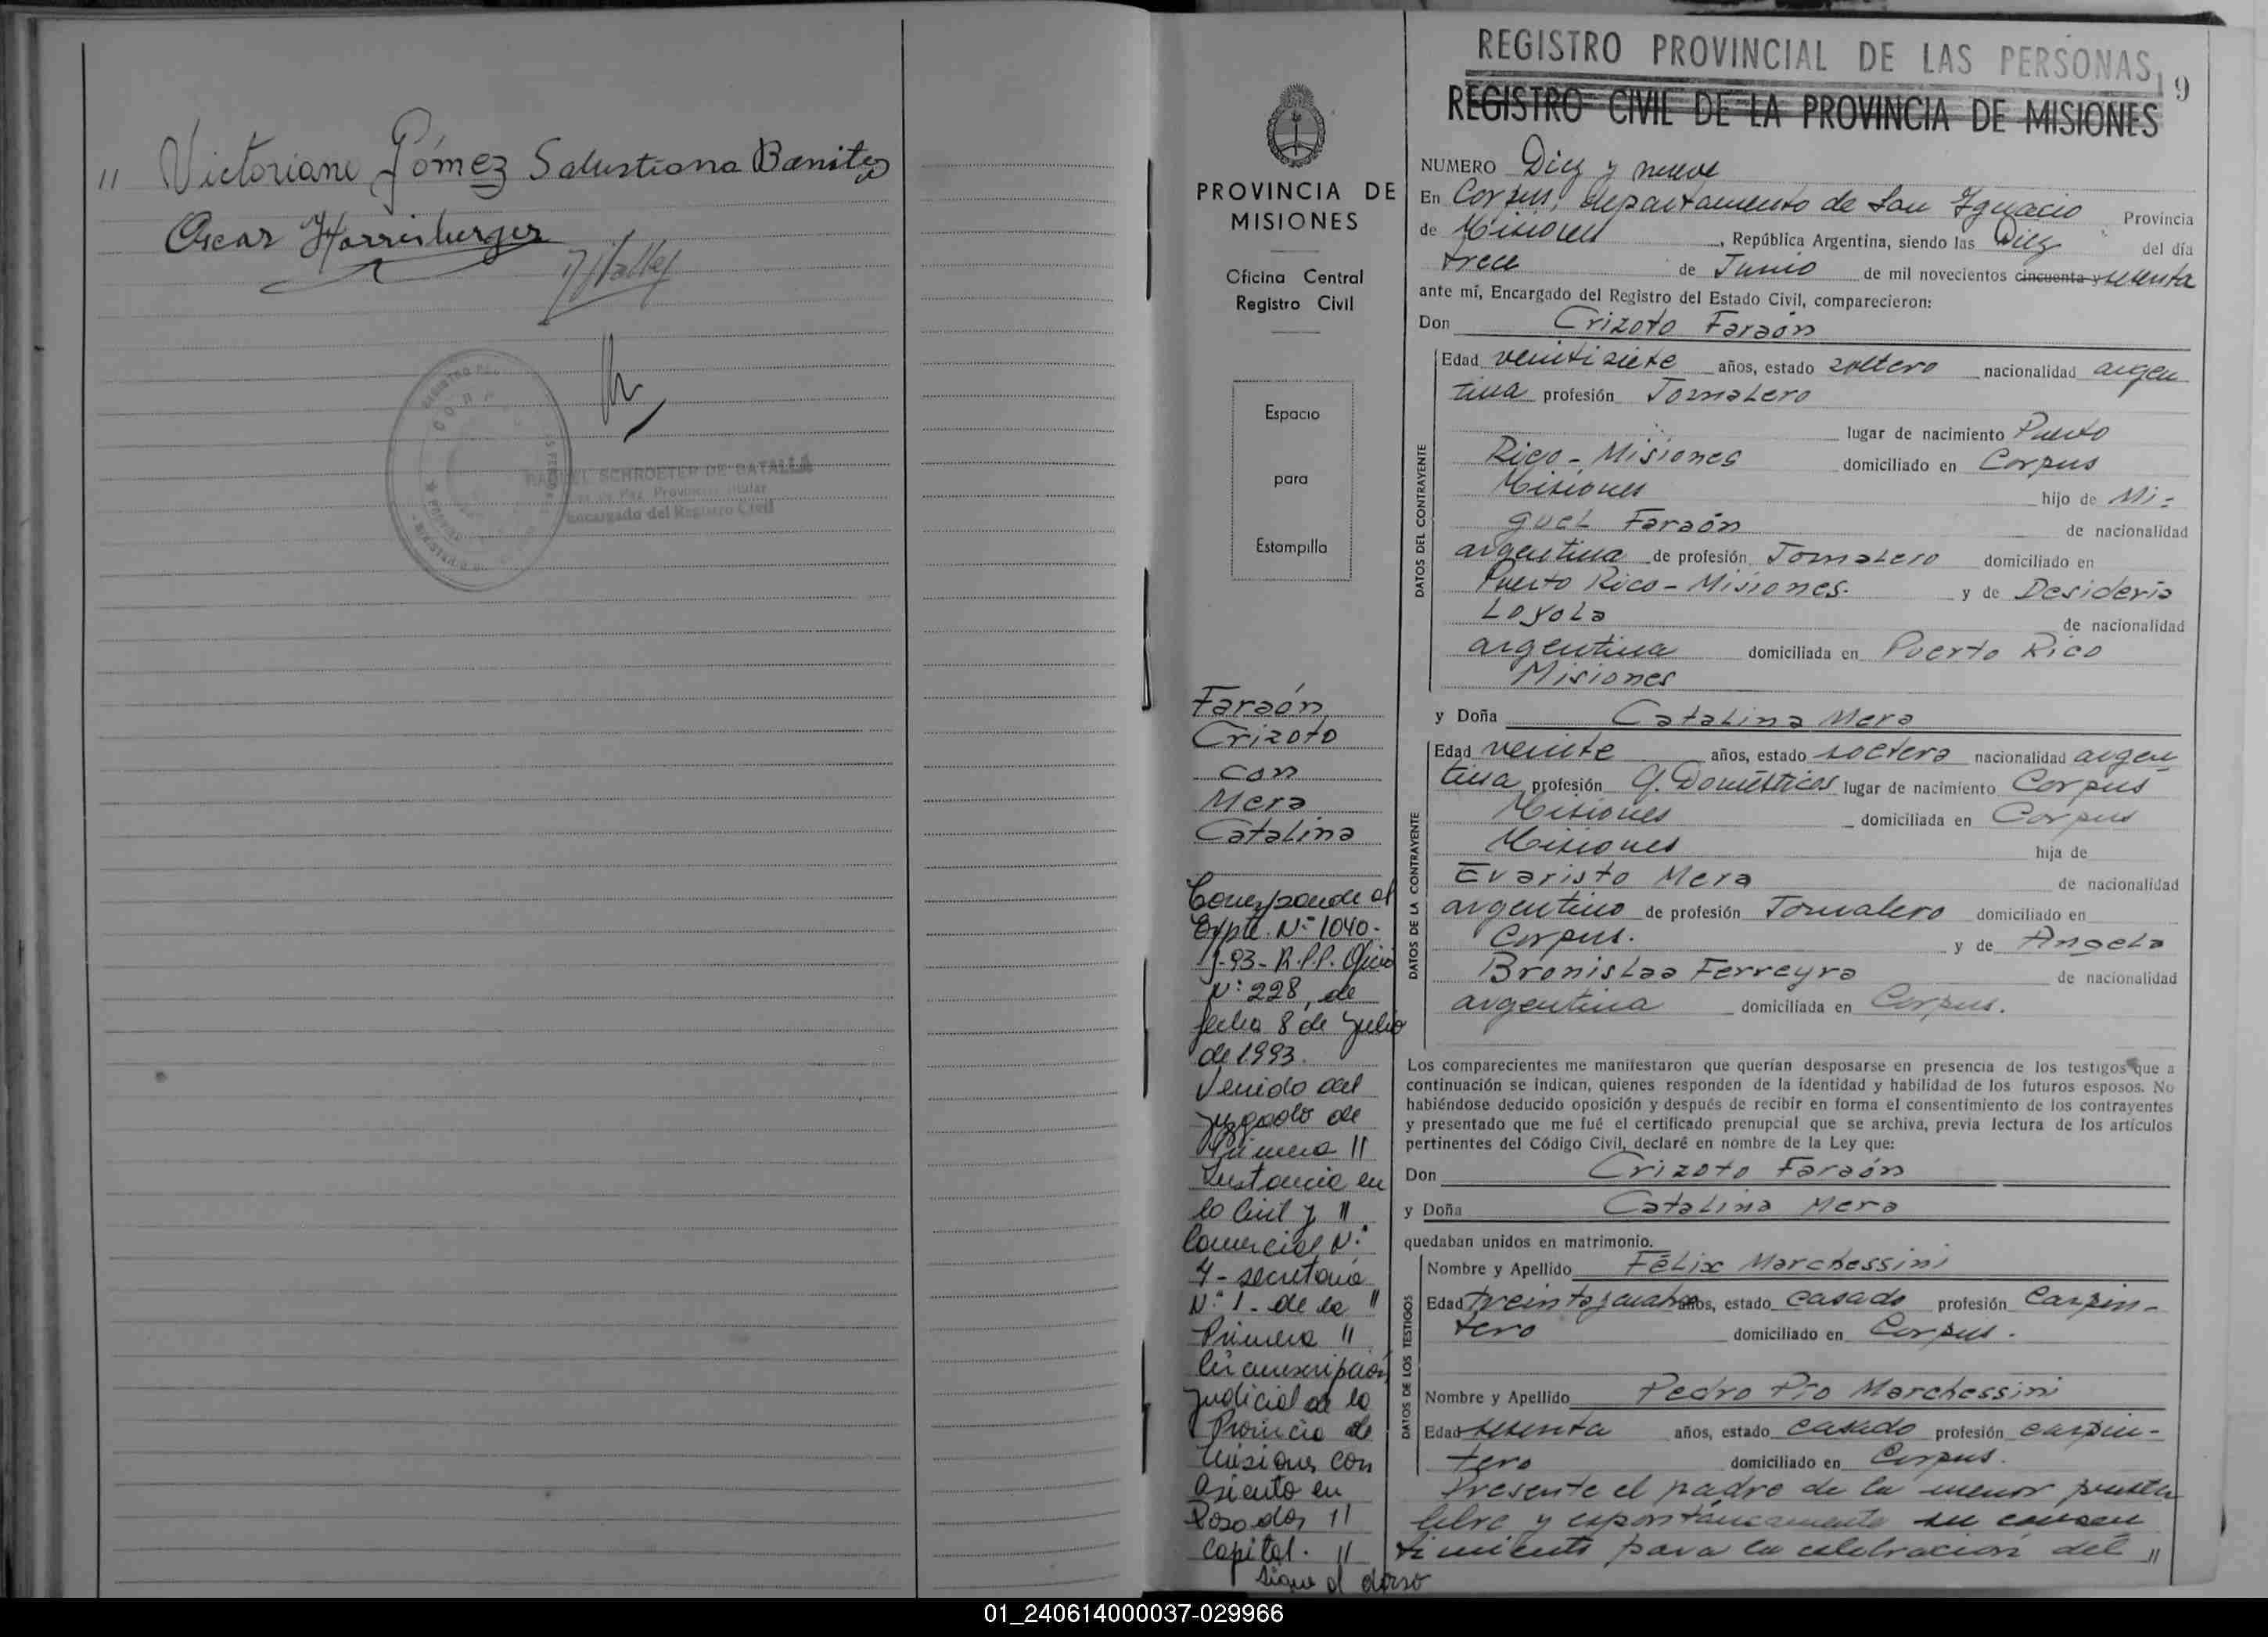 " Victoriano Gómez Salustiana Benitez
Oscar Harrisberger
RAQUEL SCHROETER DE BATALLA
Juez de Paz Provincial Titular
Encargado del Registro Civil
PROVINCIA DE
MISIONES
Oficina Central
Registro Civil
Espacio
para
Estampilla
Faraón
Crizoto
con
Mera
Catalina
Corresponde al
Expte. Nº 1040-
93- R.P.P. Oficio
Nº 228, de
fecha 8 de Julio
de 1993.
Venido del
Juzgado de
Primera "
Instancia en
lo Civil y "
Comercial Nº
4- secretaria
Nº 1- de la "
Primera "
Circunscripción
Judicial de la
Provincia de
Misiones con
asiento en
Posadas "
Capital. "
Sigue al dorso
REGISTRO PROVINCIAL DE LAS PERSONAS
19
REGISTRO CIVIL DE LA PROVINCIA DE MISIONES
NUMERO Diez y nueve
En Corpus, departamento de San Ignacio Provincia
de Misiones, República Argentina, siendo las Diez del día
trece de Junio de mil novecientos cincuenta y sesenta
ante mí, Encargado del Registro del Estado Civil, comparecieron:
Don Crizoto Faraón
DATOS DEL CONTRAYENTE
Edad veintisiete años, estado soltero nacionalidad argen
tina profesión Jornalero
lugar de nacimiento Puerto
Rico - Misiones domiciliado en Corpus
Misiones hijo de Mi-
guel Faraón de nacionalidad
argentina de profesión Jornalero domiciliado en
Puerto Rico - Misiones. y de Desideria
Loyola de nacionalidad
argentina domiciliada en Puerto Rico
Misiones
y Doña Catalina Mera
DATOS DE LA CONTRAYENTE
Edad veinte años, estado soltera nacionalidad argen
tina profesión Q. Domésticos lugar de nacimiento Corpus
Misiones domiciliada en Corpus
Misiones hija de
Evaristo Mera de nacionalidad
argentino de profesión Jornalero domiciliado en
Corpus. y de Angela
Bronislaa Ferreyra de nacionalidad
argentina domiciliada en Corpus.
Los comparecientes me manifestaron que querían desposarse en presencia de los testigos que a
continuación se indican, quienes responden de la identidad y habilidad de los futuros esposos. No
habiéndose deducido oposición y después de recibir en forma el consentimiento de los contrayentes
y presentado que me fué el certificado prenupcial que se archiva, previa lectura de los artículos
pertinentes del Código Civil, declaré en nombre de la Ley que:
Don Crizoto Faraón
y Doña Catalina Mera
quedaban unidos en matrimonio.
DATOS DE LOS TESTIGOS
Nombre y Apellido Félix Marchessini
Edad treinta y cuatro años, estado casado profesión Carpin-
tero domiciliado en Corpus.
Nombre y Apellido Pedro Pío Marchessini
Edad sesenta años, estado casado profesión carpin-
tero domiciliado en Corpus.
Presente el padre de la menor presta
libre y espontáneamente su consen
timiento para la celebración del "
01_240614000037-029966